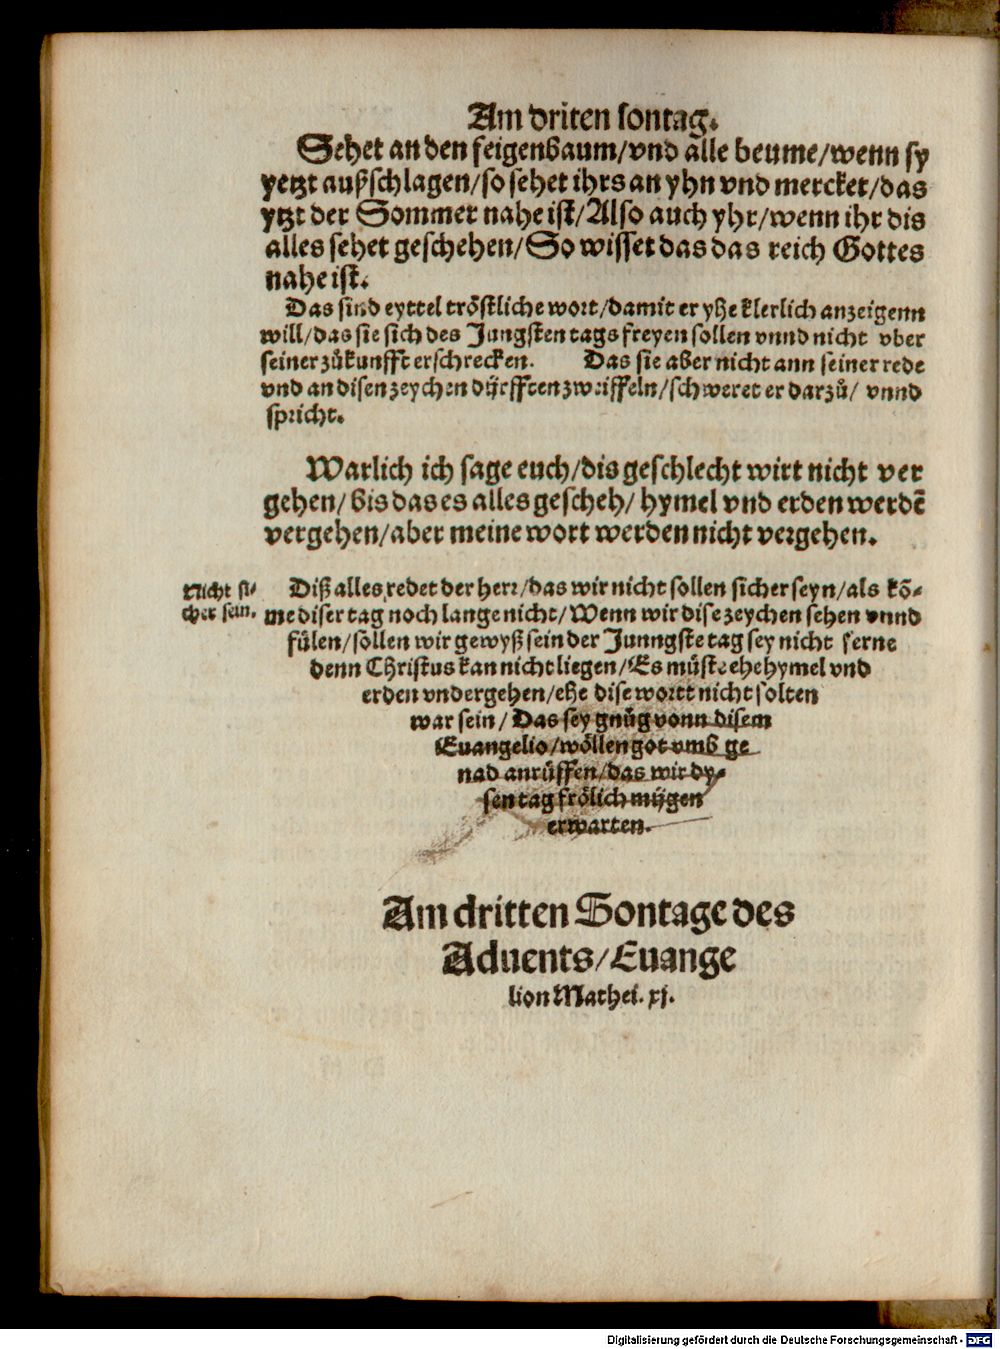 Am driten sontag.
Sehet an den feigenbaum/vnd alle beume/wenn sy
yetzt außschlagen/so sehet ihrs an yhn vnd mercket/das
ytzt der Sommer nahe ist/Also auch yhr/wenn ihr dis
alles sehet geschehen/So wisset das das reich Gottes
nahe ist.
Das sind eyttel tröstliche wort/damit er yhe klerlich anzeigenn
will/das sie sich des Jungsten tags freyen sollen vnnd nicht vber
seiner zůkunfft erschrecken. Das sie aber nicht ann seiner rede
vnd an disen zeychen dÿrfften zweiffeln/schweret er darzů/ vnnd
spricht.
Warlich ich sage euch/dis geschlecht wirt nicht ver
gehen/bis das es alles gescheh/ hymel vnd erden werdē
vergehen/aber meine wort werden nicht vergehen.
Nicht si-
cher sein.
Diß alles redet der herr/das wir nicht sollen sicher seyn/als kō-
me diser tag noch lange nicht/Wenn wir dise zeychen sehen vnnd
fülen/sollen wir gewyß sein der Junngste tag sey nicht ferne
denn Christus kan nicht liegen/Es müste ehe hymel vnd
erden vndergehen/ehe dise wortt nicht solten
war sein/ Das sey gnůg vonn disem
Euangelio/wöllen got vmb ge
nad anrüffen/das wir dy-
sen tag frölich mÿgen
erwarten.
Am dritten Sontage des
Aduents/Euange
lion Mathei. xj.
Digitalisierung gefördert durch die Deutsche Forschungsgemeinschaft - DFG